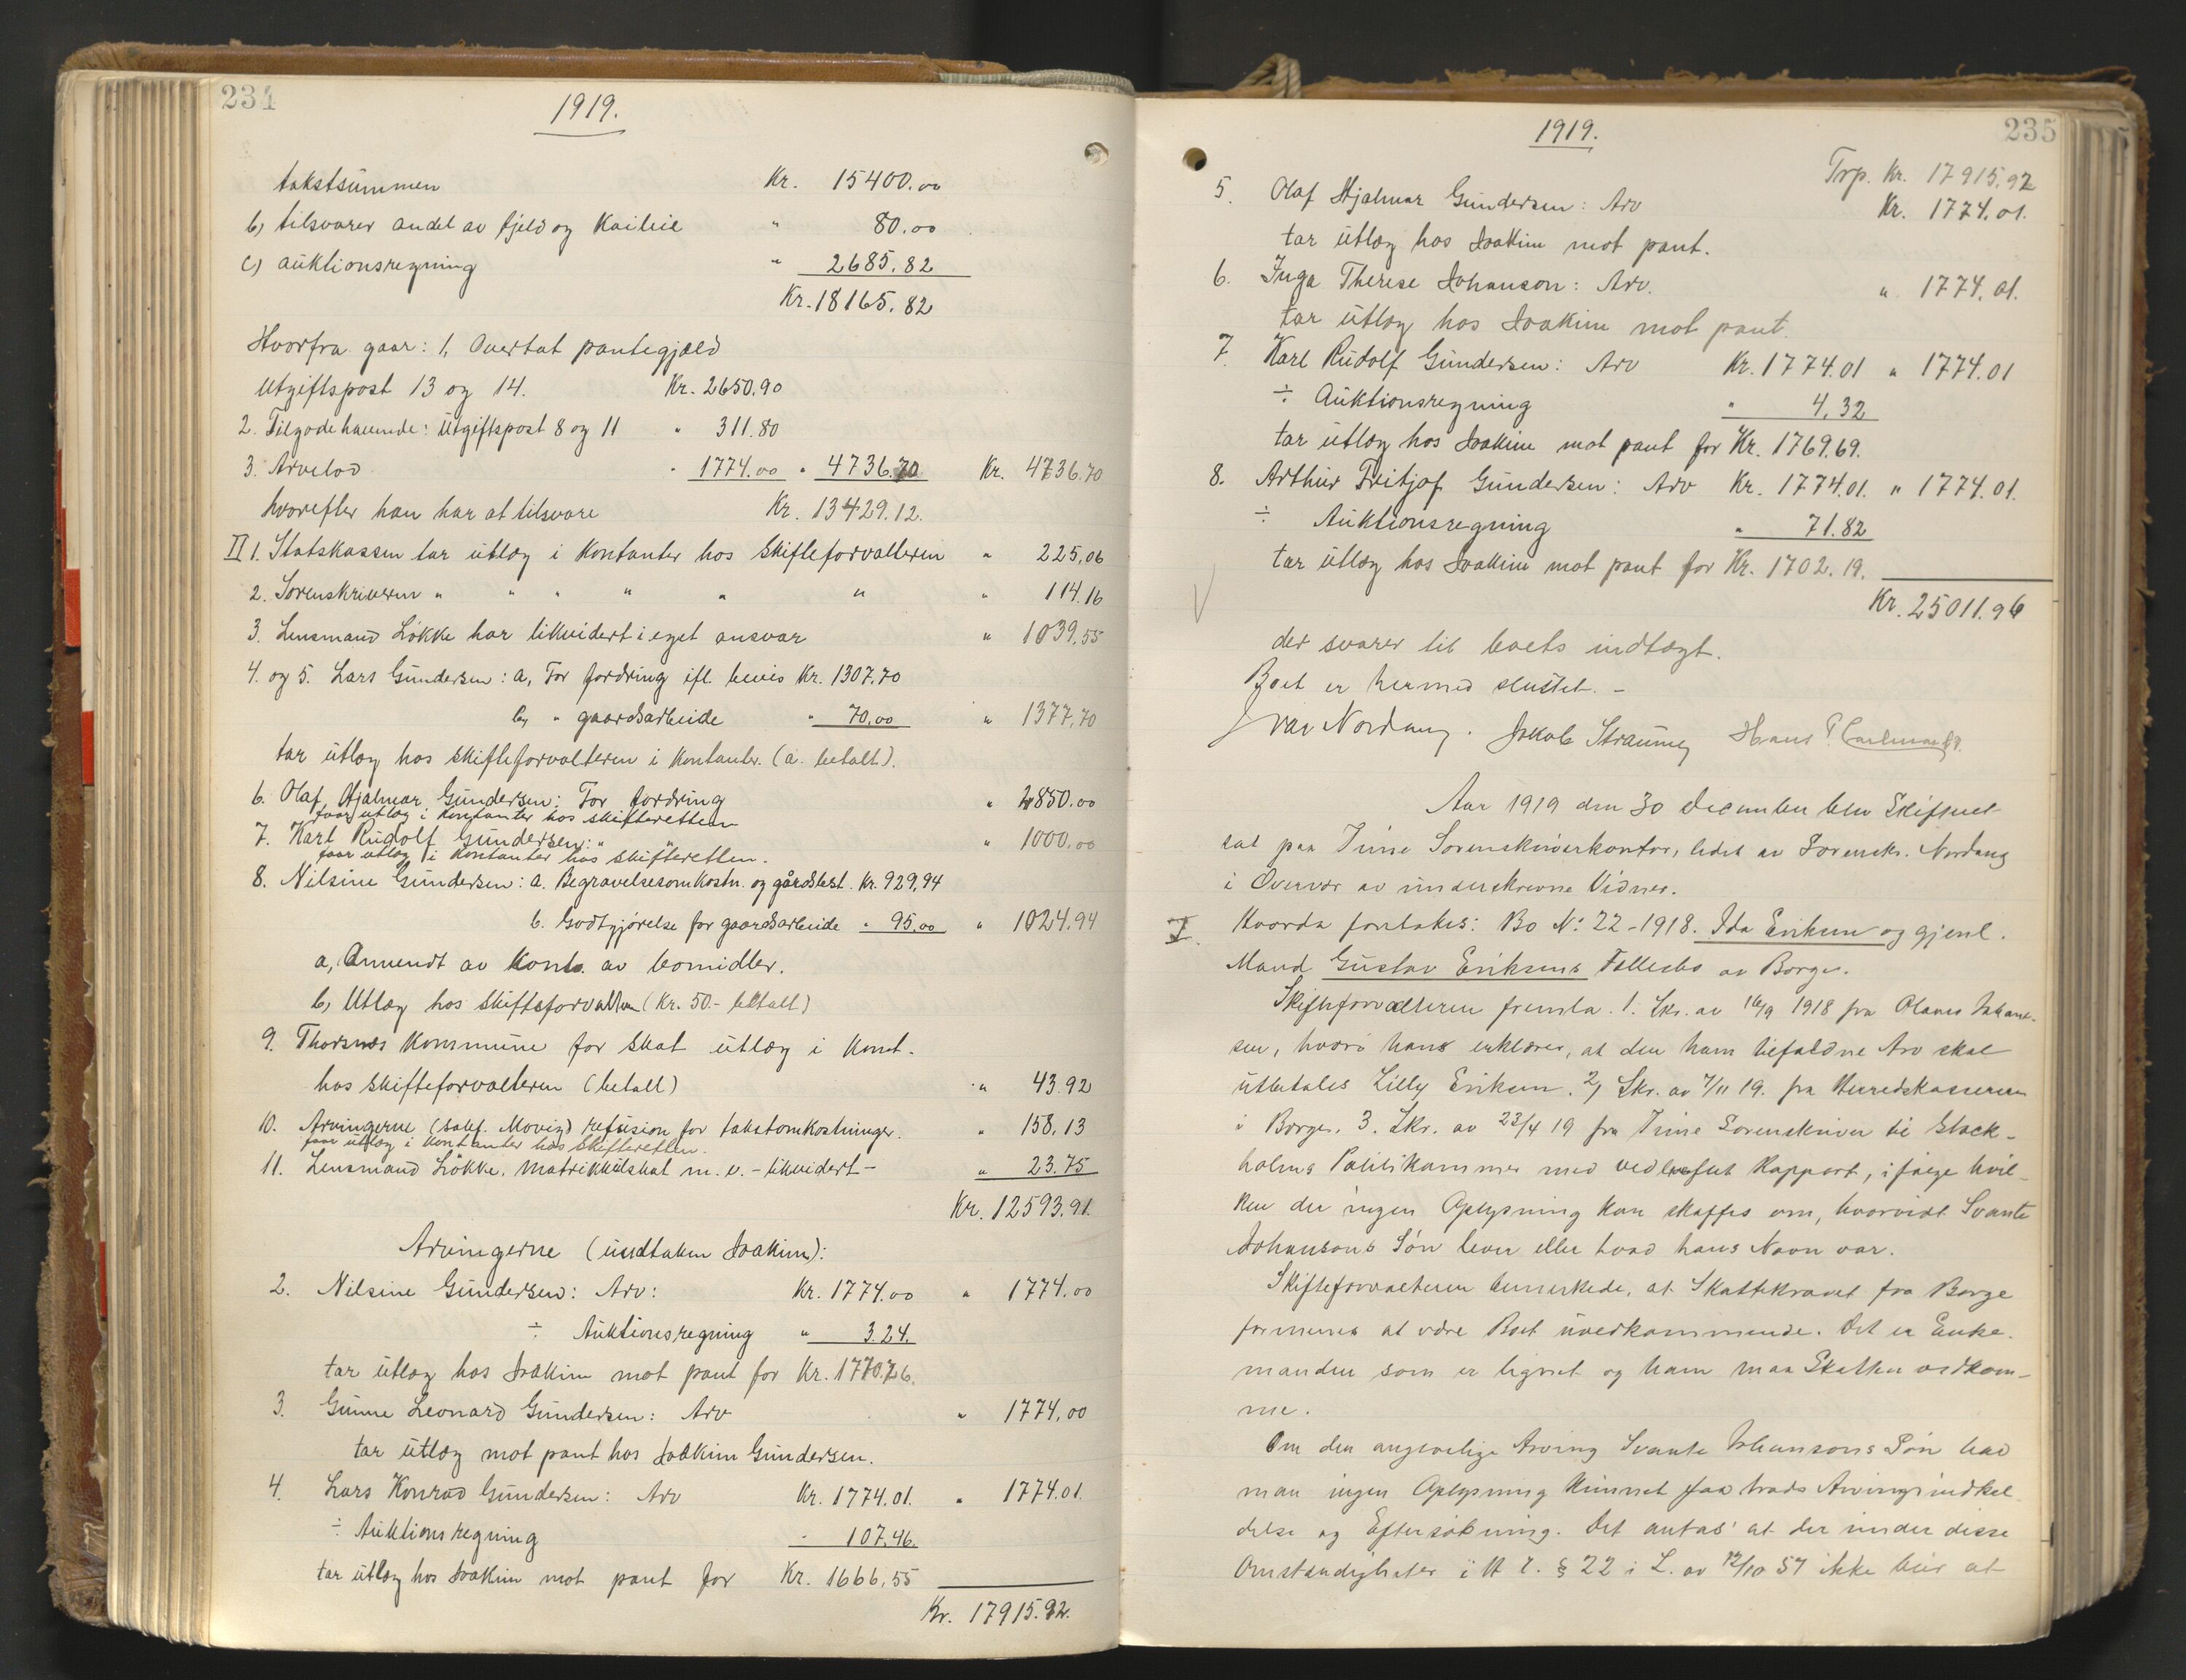 234
1919.
takstsummen Kr. 15400.00
b, tilsvarer andel av fjeld og Kaileie " 80.00
c, auktionsregning " 2685.82
Kr. 18165.82
Hvorfra gaar: 1, Overtat pantegjæld
utgiftspost 13 og 14. Kr. 2650.90
2. Tilgodehavende: Utgiftspost 8 og 11 " 311.80
3. Arvelod " 1774.00 " 4736.70 Kr. 4736.70
hvorefter han har at tilsvare Kr. 13429.12.
II 1. Statskassen tar utlæg i Kontanter hos Skifteforvalteren " 225,06
2. Sorenskriveren " " " " " " " 114.16
3. Lensmand Løkke har likvidert i eget ansvar " 1039,55
4. og 5. Lars Gundersen: a, For fordring ifl. bevis Kr. 1307.70
b, " gaardsarbeide " 70,00 " 1377,70
tar utlæg hos skifteforvalteren i Kontanter. (a. betalt).
6. Olaf Hjalmar Gundersen: For fordring " 2850.00
faar utlæg i Kontanter hos skifteretten
7. Karl Rudolf Gundersen: " " " 1000,00
faar utlæg i Kontanter hos skifteretten.
8. Nilsine Gundersen: a. Begravelsesomkostn. og gårdsbest. Kr. 929,94
b. Godtgjørelse for gaardsarbeide " 95,00 " 1024.94
a, Anvendt av Kont. av bomidler.
b, Utlæg hos skifteforvalteren (Kr. 50.- betalt)
9. Thorsnes Kommune for skat utlæg i Kont.
hos skifteforvalteren (betalt) " 43.92
10. Arvingerne (sakf. Movig) refusion for takstomkostninger. " 158,13
faar utlæg i Kontanter hos Skifteretten.
11. Lensmand Løkke, Matrikkulskat m. v. - likvidert - " 23.75
Kr. 12593.91.
Arvingerne (undtaken Joakim):
2. Nilsine Gundersen: Arv: Kr. 1774.00 " 1774.00
÷ Auktionsregning " 3.24.
tar utlæg hos Joakim mot pant for Kr. 1770.76.
3. Gunne Leonard Gundersen: Arv " 1774,00
tar utlæg mot pant hos Joakim Gundersen.
4. Lars Konrad Gundersen: Arv Kr. 1774.01. " 1774.01.
÷ Auktionsregning " 107,46.
tar utlæg hos Joakim mot pant for Kr. 1666,55
Kr. 17915.92.
235
1919.
Trp. Kr. 17915,92
5. Olaf Hjalmar Gundersen: Arv Kr. 1774.01.
tar utlæg hos Joakim mot pant.
6. Inga Therese Johanson: Arv. " 1774.01.
tar utlæg hos Joakim mot pant.
7. Karl Rudolf Gundersen: Arv Kr. 1774.01 " 1774.01
÷ Auktionsregning " 4,32
tar utlæg hos Joakim mot pant for Kr. 1769.69.
8. Arthur Fritjof Gundersen: Arv Kr. 1774.01. " 1774.01.
÷ Auktionsregning " 71.82
tar utlæg hos Joakim mot pant for Kr. 1702.19.
Kr. 25011.96
der svarer til boets indtægt.
Boet er hermed sluttet. -
Ivar Nordang. Jakob Straume Hans P.
Aar 1919 den 30 December blev Skifteret
sat paa Tune Sorenskriverkontor, ledet av Sorenskr. Nordang
i Overvær av underskrevne Vidner.
I. Hvorda foretakes: Bo No: 22-1918. Ida Eriksen og gjenl.
Mand Gustav Eriksens Fællesbo av Borge.
Skifteforvalteren fremla. 1. Skr. av 16/9 1918 fra Olaves Johan-
sen, hvori hans erklærer, at den ham tilfaldne Arv skal
utbetales Lilly Eriksen. 2, Skr. av 7/11 19. fra Herredskasseren
i Borge. 3. Skr. av 23/4 19 fra Tune Sorenskriver til Stock-
holms Politikammer med vedheftet Rapport, ifølge hvil-
ken der ingen Oplysning kan skaffes om, hvorvidt Svante
Johansons Søn lever eller hvad hans Navn var.
Skifteforvalteren bemerkede, at Skattekravet fra Borge
formenes at være Boet uvedkommende. Det er Enke-
manden som er lignet og ham maa Skatten vedkom-
me.
Om den angivelige Arving Svante Johansons Søn har
man ingen Oplysning kunnet faa trods Arvingsindkal-
delse og Eftersøkning. Det antas at der under disse
Omstændigheter i H. t. § 22 i L. av 12/10 57 ikke blir at